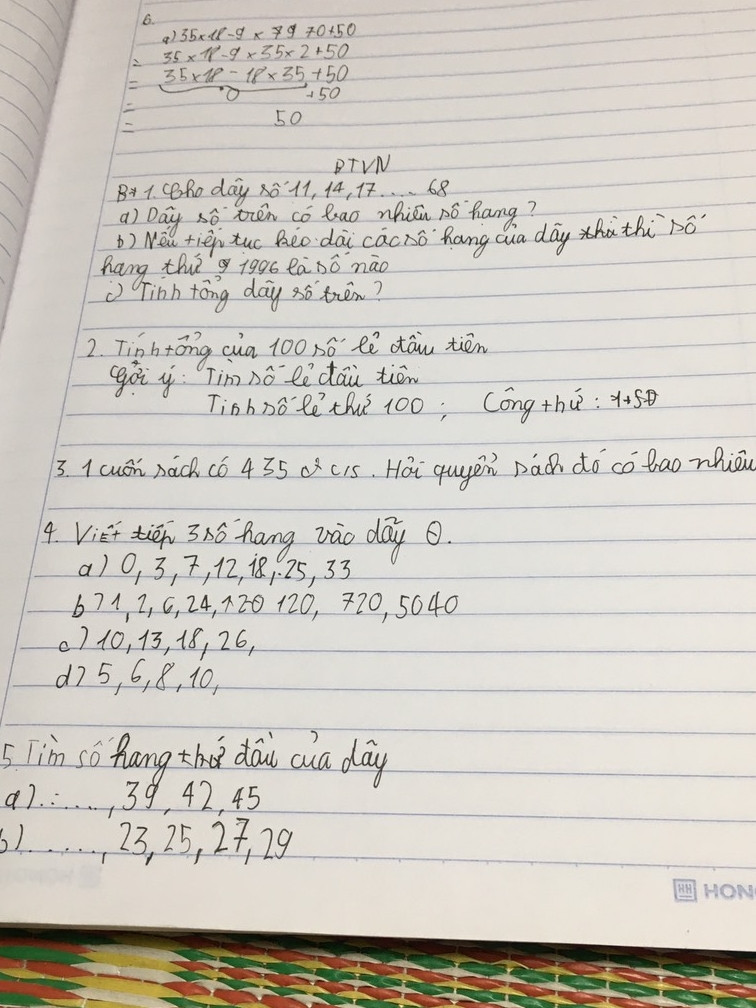 6.
a) 35x18-9 x 79 70+50
= 35x18-9 x 35x2+50
= 35x18 - 18x35 + 50
= 0 +50
= 50
BTVN
B* 1. Cho dãy số 11, 14, 17 .... 68
a) Dãy số trên có bao nhiêu số hang?
b) Nếu tiếp tục kéo dài các số hang của dãy thì số
hang thứ 1996 là số nào
c) Tính tổng dãy số trên?
2. Tính tổng của 100 số lẻ đầu tiên
Gởi ý: Tìm số lẻ đầu tiên
Tính số lẻ thứ 100; Công thứ:
3. 1 cuốn sách có 435 c/s. Hỏi quyển sách đó có bao nhiêu
4. Viết tiếp 3 số hang vào dãy
a) 0, 3, 7, 12, 18, 25, 33
b) 1, 2, 6, 24, 120 120, 720, 5040
c) 10, 13, 18, 26,
d) 5, 6, 8, 10,
5. Tìm số hang thứ đầu của dãy
a) ....., 39, 42, 45
b) ....., 23, 25, 27, 29
HH HON